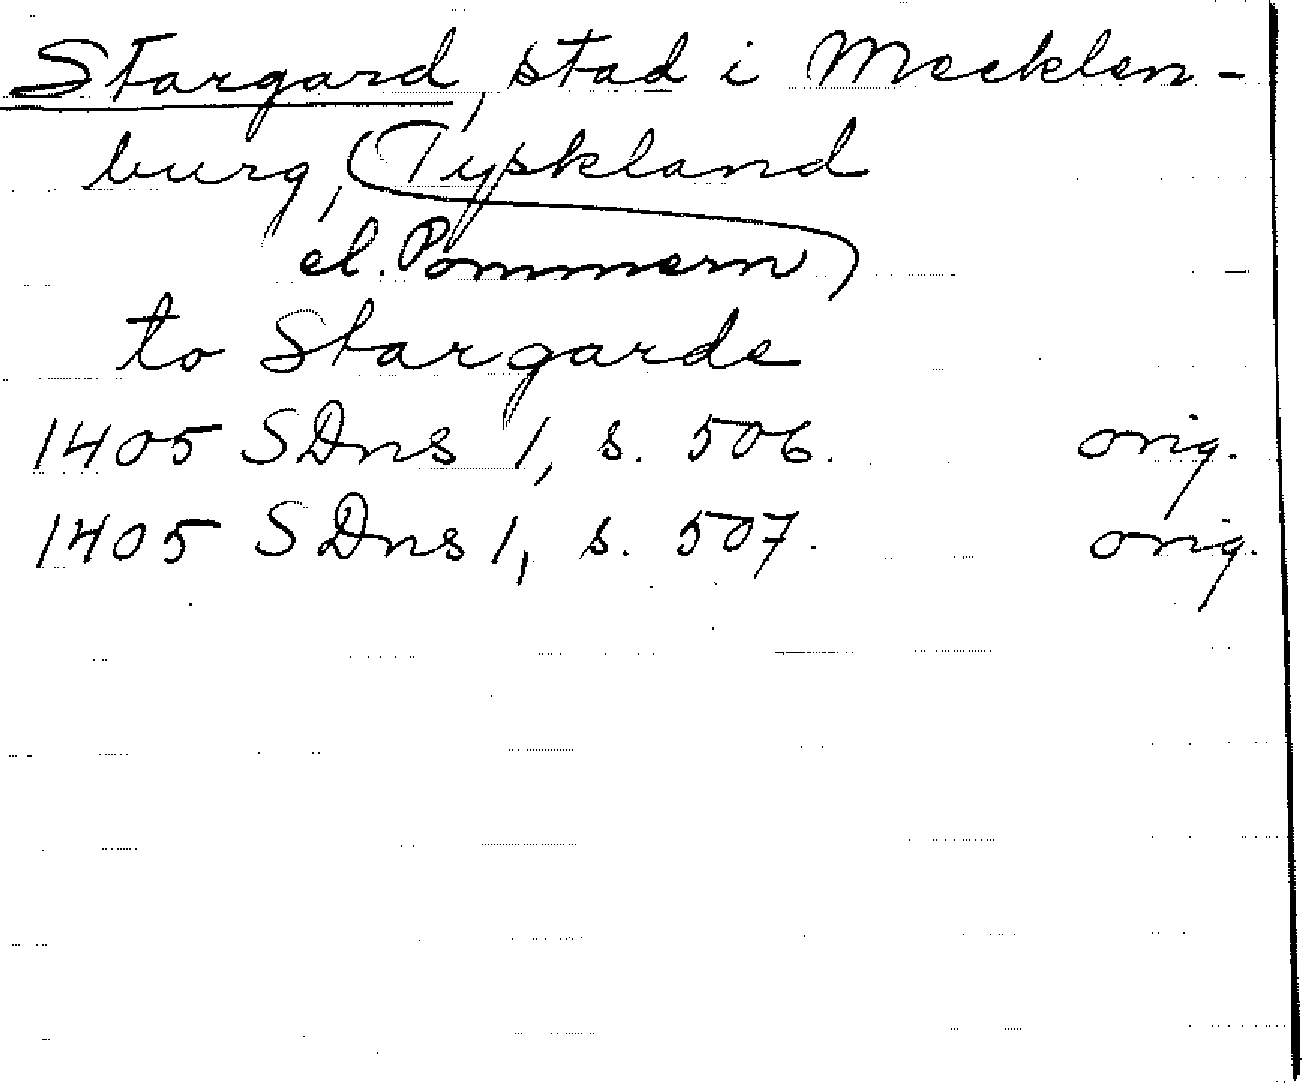 Stargard, stad i Mecklen-
burg, Tyskland
el. Pommern
to Stargarde
1405 SDns 1, s. 506. orig.
1405 SDns 1, s. 507. orig.